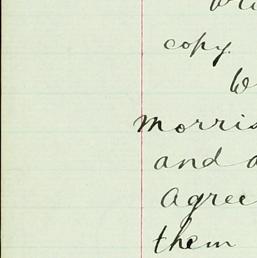 copy.
W
Morris
and a
Agree
them